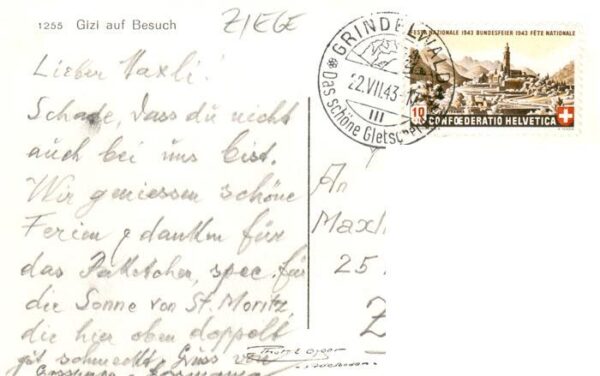 1255 Gizi auf Besuch
ZIEGE
Lieber Maxli!
Schade, dass du nicht
auch bei uns bist.
Wir geniessen schöne
Ferien & danken für
das spec. für
die Sonne von St. Moritz,
die hier oben doppelt
gut schmeckt. Gruss von
GRINDELWALD
22.VII.43
III
Das schöne Gletscher
FESTA NAZIONALE 1943 BUNDESFEIER 1943 FÊTE NATIONALE
10 CONFOEDERATIO HELVETICA
An
Maxli
25
Z